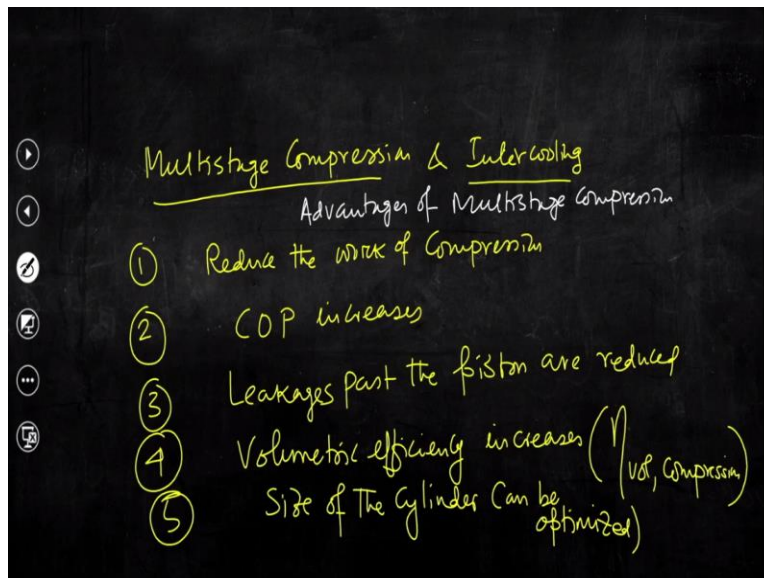 Multistage Compression & Intercooling
Advantages of Multistage Compression
① Reduce the work of Compression
② COP increases
③ Leakages past the piston are reduced
④ Volumetric efficiency increases (η vol, compression)
⑤ Size of The Cylinder Can be
optimized)